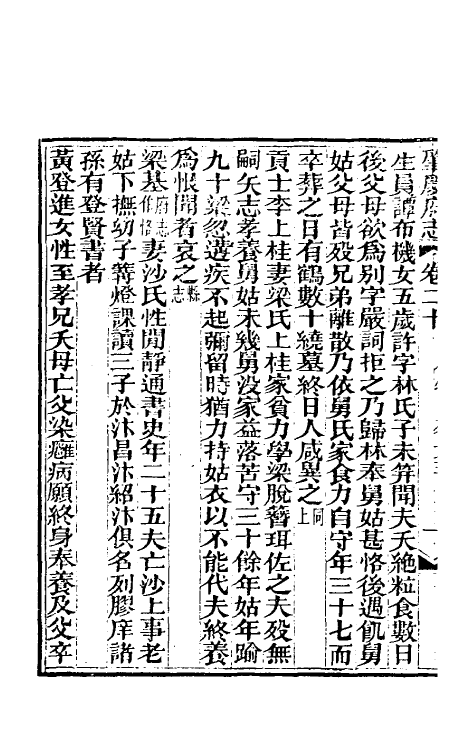 肇慶府志　卷二十
生員譚布機女五歲許字林氏子未笄聞夫夭絶粒食數日
後父母欲爲別字嚴詞拒之乃歸林奉舅姑甚恪後遇飢舅
姑父母皆歿兄弟離散乃依舅氏家食力自守年三十七而
卒葬之日有鶴數十繞墓終日人咸異之同上
貢士李上桂妻梁氏上桂家貧力學梁脫簪珥佐之夫歿無
嗣矢志孝養舅姑未幾舅沒家益落苦守三十餘年姑年踰
九十梁忽遘疾不起彌留時猶力持姑衣以不能代夫終養
爲恨聞者哀之縣志
梁基府志作恪妻沙氏性閒靜通書史年二十五夫亡沙上事老
姑下撫幼子篝燈課讀三子於汴昌汴紹汴俱名列膠庠諸
孫有登賢書者
黃登進女性至孝兄夭母亡父染癱病願終身奉養及父卒